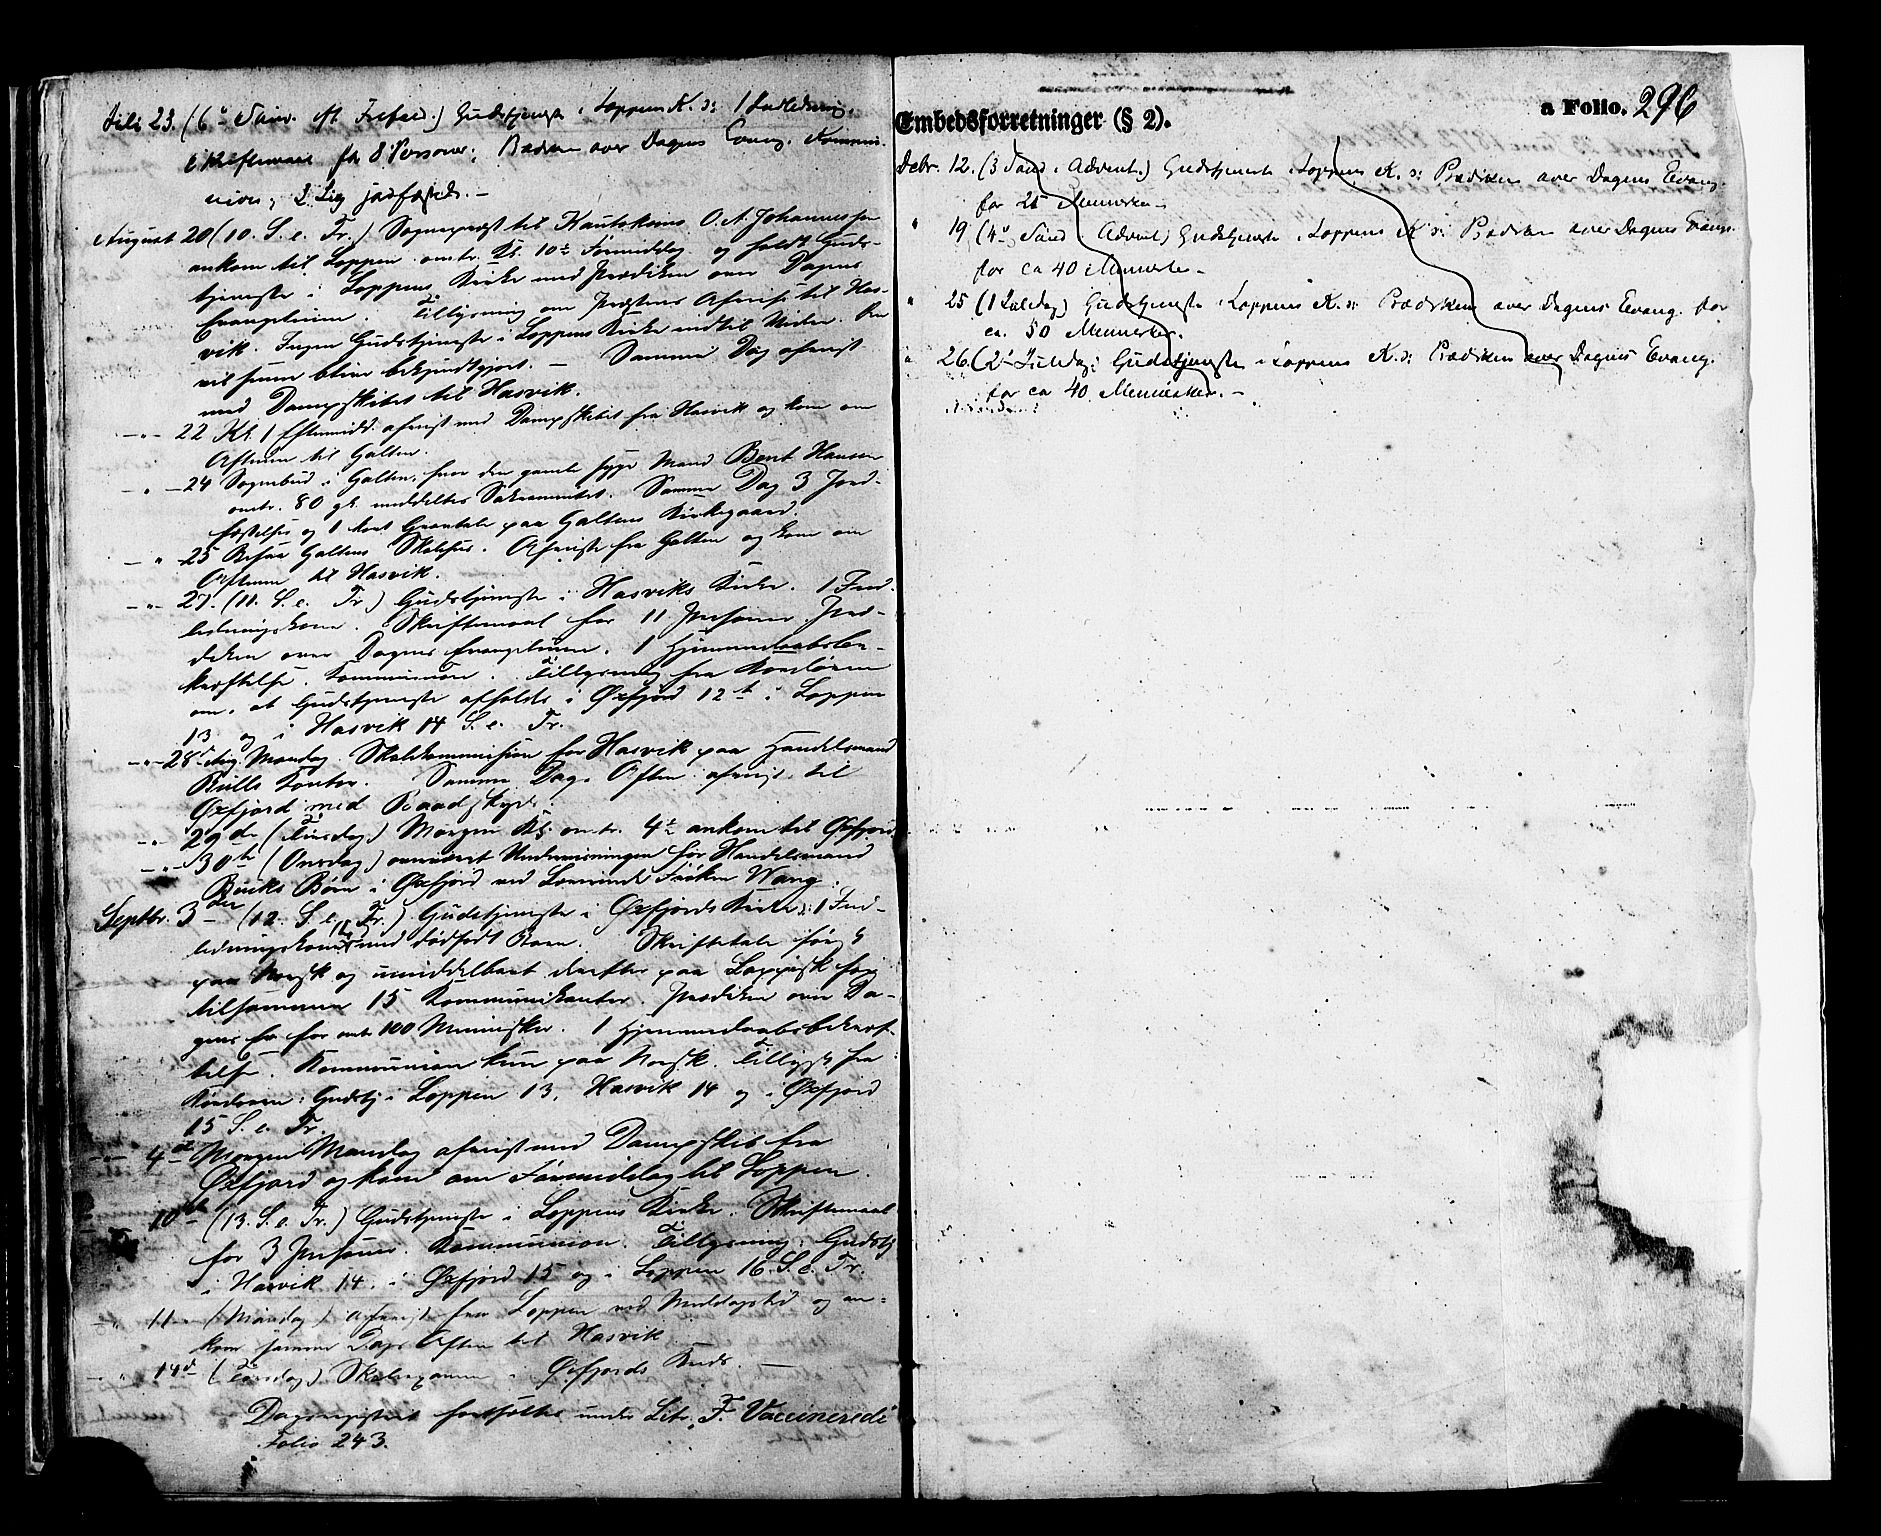 Juli 23. (6te Sønd. eft. Trefold.) Gudstjeneste i Loppens K. ɔ: 1 Indledning,
Skriftemaal for 8 Personer, Prædiken over Dagens Evang. Kommu-
nion, 2 Lig jordfæstede. —
August 20 (10. S. e. Tr.) Sogneprest til Kautokeino O. A. Johannessen
ankom til Loppen omtr. Kl. 10½ Formiddag og holdt Guds-
tjeneste i Loppens Kirke med Prædiken over Dagens
Evangelium. Tillysning om Præstens Afreise til Has-
vik. Ingen Gudstjeneste i Loppens Kirke indtil videre. Den
vil senere blive bekjendtgjort. — Samme Dag afreist
med Dampskibet til Hasvik.
—"— 22 Kl. 1 Eftermidd. afreist med Dampskibet fra Hasvik og kom om
Aftenen til Galten.
—"— 24 Sognebud i Galten, hvor den gamle syge Mand Bent Hansen
omtr. 80 gl. meddeltes Sakramentet. Samme Dag 3 Jord-
fæstelser og 1 kort Gravtale paa Galtens Kirkegaard.
—"— 25 Besaa Galtens Skolehus. Afreiste fra Galten og kom om
Aftenen til Hasvik.
—"— 27. (11. S. e. Tr.) Gudstjeneste i Hasviks Kirke. 1 Ind-
ledningskone. Skriftemaal for 11 Personer. Præ-
diken over Dagens Evangelium. 1 Hjemmedaabsbe-
kræftelse. Kommunion. Tillysning fra Kordøren
om, at Gudstjeneste afholdes i Øxfjord 12te i Loppen
13 og i Hasvik 14 S. e. Tr.
—"— 28de Aug. Mandag. Skolekommission for Hasvik paa Handelsmand
Kontor. Samme Dags Aften afreist til
Øxfjord med Baadskyds.
—"— 29de (Tirsdag) Morgen Kl. omtr. 4½ ankom til Øxfjord
—"— 30te (Onsdag) overværet Undervisningen for Handelsmand
Bucks Børn i Øxfjord ved Lærerinde Frøken Wang.
Septbr. 3die (12. S. e. Tr.) Gudstjeneste i Øxfjords Kirke ɔ: 1 Ind-
ledningskone med dødfødt Barn. Skriftetale først
paa Norsk og umiddelbart derefter paa Lappisk for
tilsammen 15 Kommunikanter. Prædiken over Da-
gens Ev. for omtr. 100 Mennesker. 1 Hjemmedaabsbekræf-
telse. Kommunion kun paa Norsk. Tillyst fra
Kordøren: Gudstj. i Loppen 13, Hasvik 14 og i Øxfjord
15 S. e. Tr.
—"— 4de Morgen Mandag afreist med Dampskib fra
Øxfjord og kom om Formiddag til Loppen.
10de (13. S. e. Tr.) Gudstjeneste i Loppens Kirke. Skriftemaal
for 3 Personer. Kommunion. Tillysning: Gudstj.
i Hasvik 14. i Øxfjord 15 og i Loppen 16. S. e. Tr.
11 (Mandag) afreist fra Loppen ved Middagstid og an-
kom samme Dags Aften til Hasvik.
—"— 14de (Torsdag) Skoleexamen i Øxfjords Kreds. —
Dagsregistret fortsættes under Litr. F. Vaccinerede
Folio 243.
Embedsforretninger (§ 2).
a Folio. 296
Decbr. 12. (3 Sønd. i Advent.) Gudstjeneste i Loppens K. ɔ: Prædiken over Dagens Evang.
for 25 Mennesker. —
" 19 (4de Sønd. i Advent) Gudstjeneste i Loppens K ɔ: Prædiken over Dagens Evang.
for ca 40 Mennesker —
" 25 (1 Juledag) Gudstjeneste i Loppens K. ɔ: Prædiken over Dagens Evang. for
ca. 50 Mennesker.
" 26. (2den Juledag) Gudstjeneste i Loppens K. ɔ: Prædiken over Dagens Evang.
for ca 40 Mennesker. —